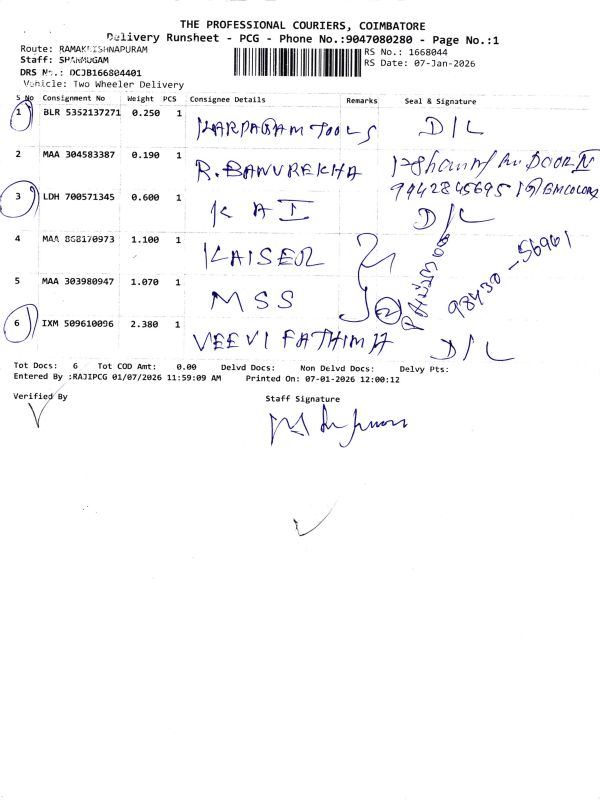 THE PROFESSIONAL COURIERS, COIMBATORE
Delivery Runsheet - PCG - Phone No.:9047080280 - Page No.:1
Route: RAMAKRISHNAPURAM
RS No.: 1668044
Staff: SHANMUGAM
RS Date: 07-Jan-2026
DRS No.: DCJB166804401
Vehicle: Two Wheeler Delivery
S No Consignment No Weight PCS Consignee Details Remarks Seal & Signature
1 BLR 5352137271 0.250 1 KARPAGAM TOOLS D/L
2 MAA 304583387 0.190 1 R.BANUREKHA
9442845695
3 LDH 700571345 0.600 1 K A I D/L
4 MAA 868170973 1.100 1 KAISER
98430-56961
5 MAA 303980947 1.070 1 MSS 2
6 IXM 509610096 2.380 1 VEEVI FATHIMA D/L
Tot Docs: 6 Tot COD Amt: 0.00 Delvd Docs: Non Delvd Docs: Delvy Pts:
Entered By :RAJIPCG 01/07/2026 11:59:09 AM Printed On: 07-01-2026 12:00:12
Verified By Staff Signature